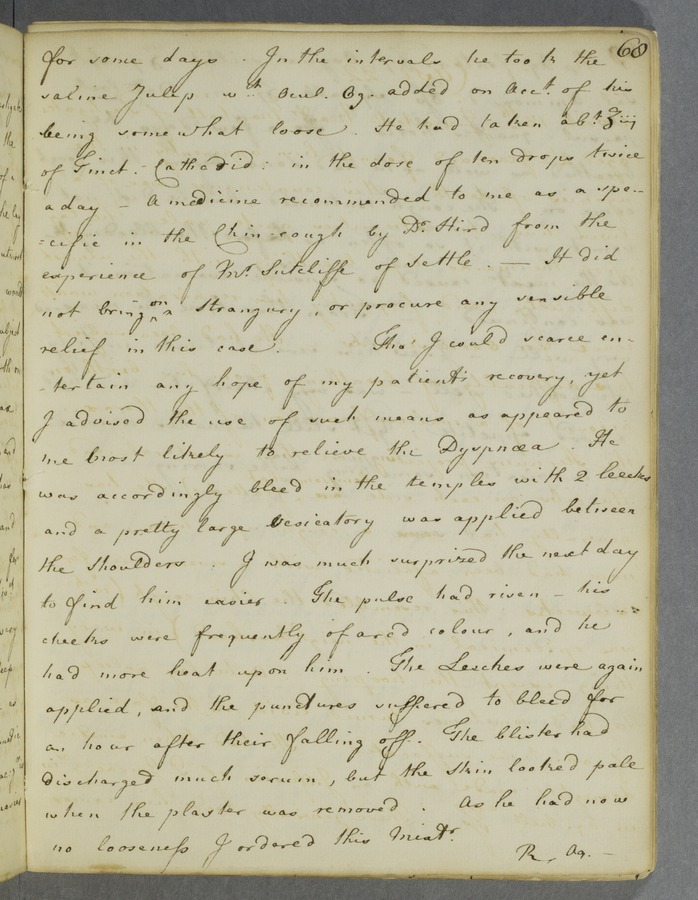 68
for some days. In the intervals he took the
saline Julep wth. Ocul. ℥. added on Acct. of his
being somewhat loose. He had taken abt. ℥iij
of Tinct. Cathadid: in the dose of ten drops twice
a day – A medicine recommended to me as a spe-
=cific in the Chin-cough by Dr. Hird from the
experience of Mr. Sutcliffe of Settle. — It did
not bring on a Strangury, or procure any sensible
relief in this case. Tho' I could scarce en-
-tertain any hope of my patient's recovery, yet
I advised the use of such means as appeared to
me most likely to relieve the Dyspnœa. He
was accordingly bleed in the temples with 2 leeches
and a pretty large Vesicatory was applied between
the shoulders. I was much surprized the next day
to find him easier. The pulse had risen – his
cheeks were frequently of a red colour, and he
had more heat upon him. The Leeches were again
applied, and the punctures suffered to bleed for
an hour after their falling off. The blister had
discharged much serum, but the skin looked pale
when the plaster was removed. As he had now
no looseness I ordered this Mixtr.
R Aq. –